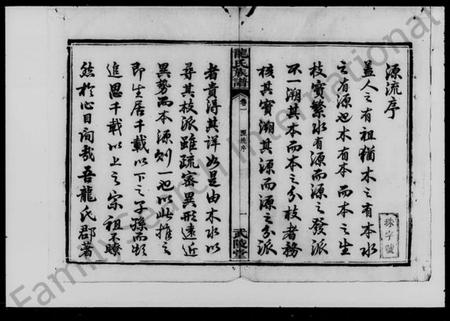 源流序
蓋人之有祖猶木之有本水
之有源也木有本而本之生
枝實繁水有源而源之發派
不一溯其本而本之分枝者務
核其實溯其源而源之分派
龍氏族譜
卷一
源流序
一
武陵堂
者貴得其詳如是由木水以
尋其枝派雖疏密異形遠近
異勢而本源則一也以此推之
即生居千載以下之子孫而欲
追思千載以上之宗祖不瞭
然於心目間哉吾龍氏郡著
字號
FamilySearch International